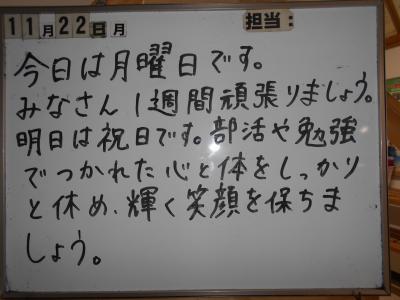 11月22日月 担当:
今日は月曜日です。
みなさん1週間頑張りましょう。
明日は祝日です。部活や勉強
でつかれた心と体をしっかり
と休め、輝く笑顔を保ちま
しょう。